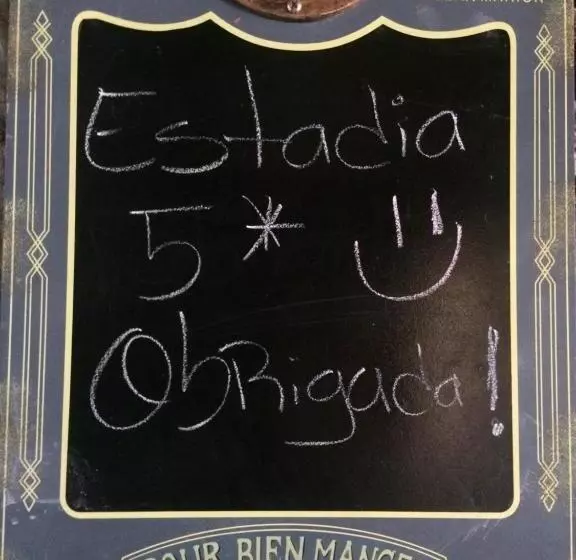 Estadia
5 *
Obrigada!
POUR BIEN MANGE